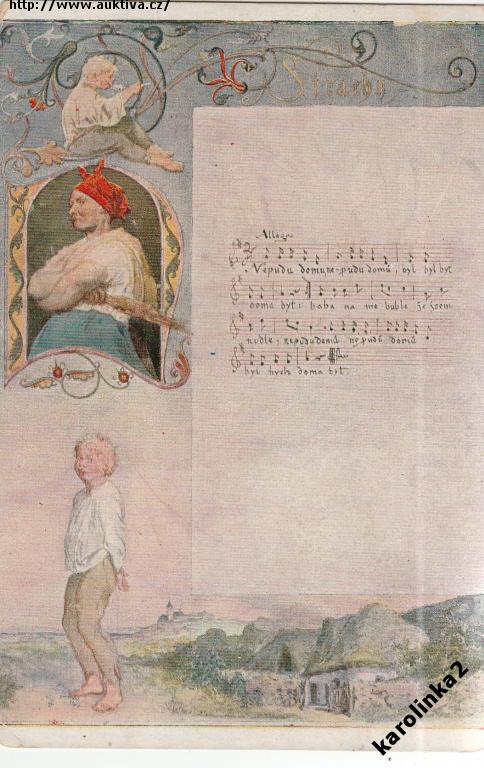 http://www.auktiva.cz/
Strachy
Allegro
Nepudu domu ne-pudu domů, byl bych byt
doma byt: baba na me buble že jsem
nudle, nepudu domů nepudu domů
byl bych doma byt.
karolinka2